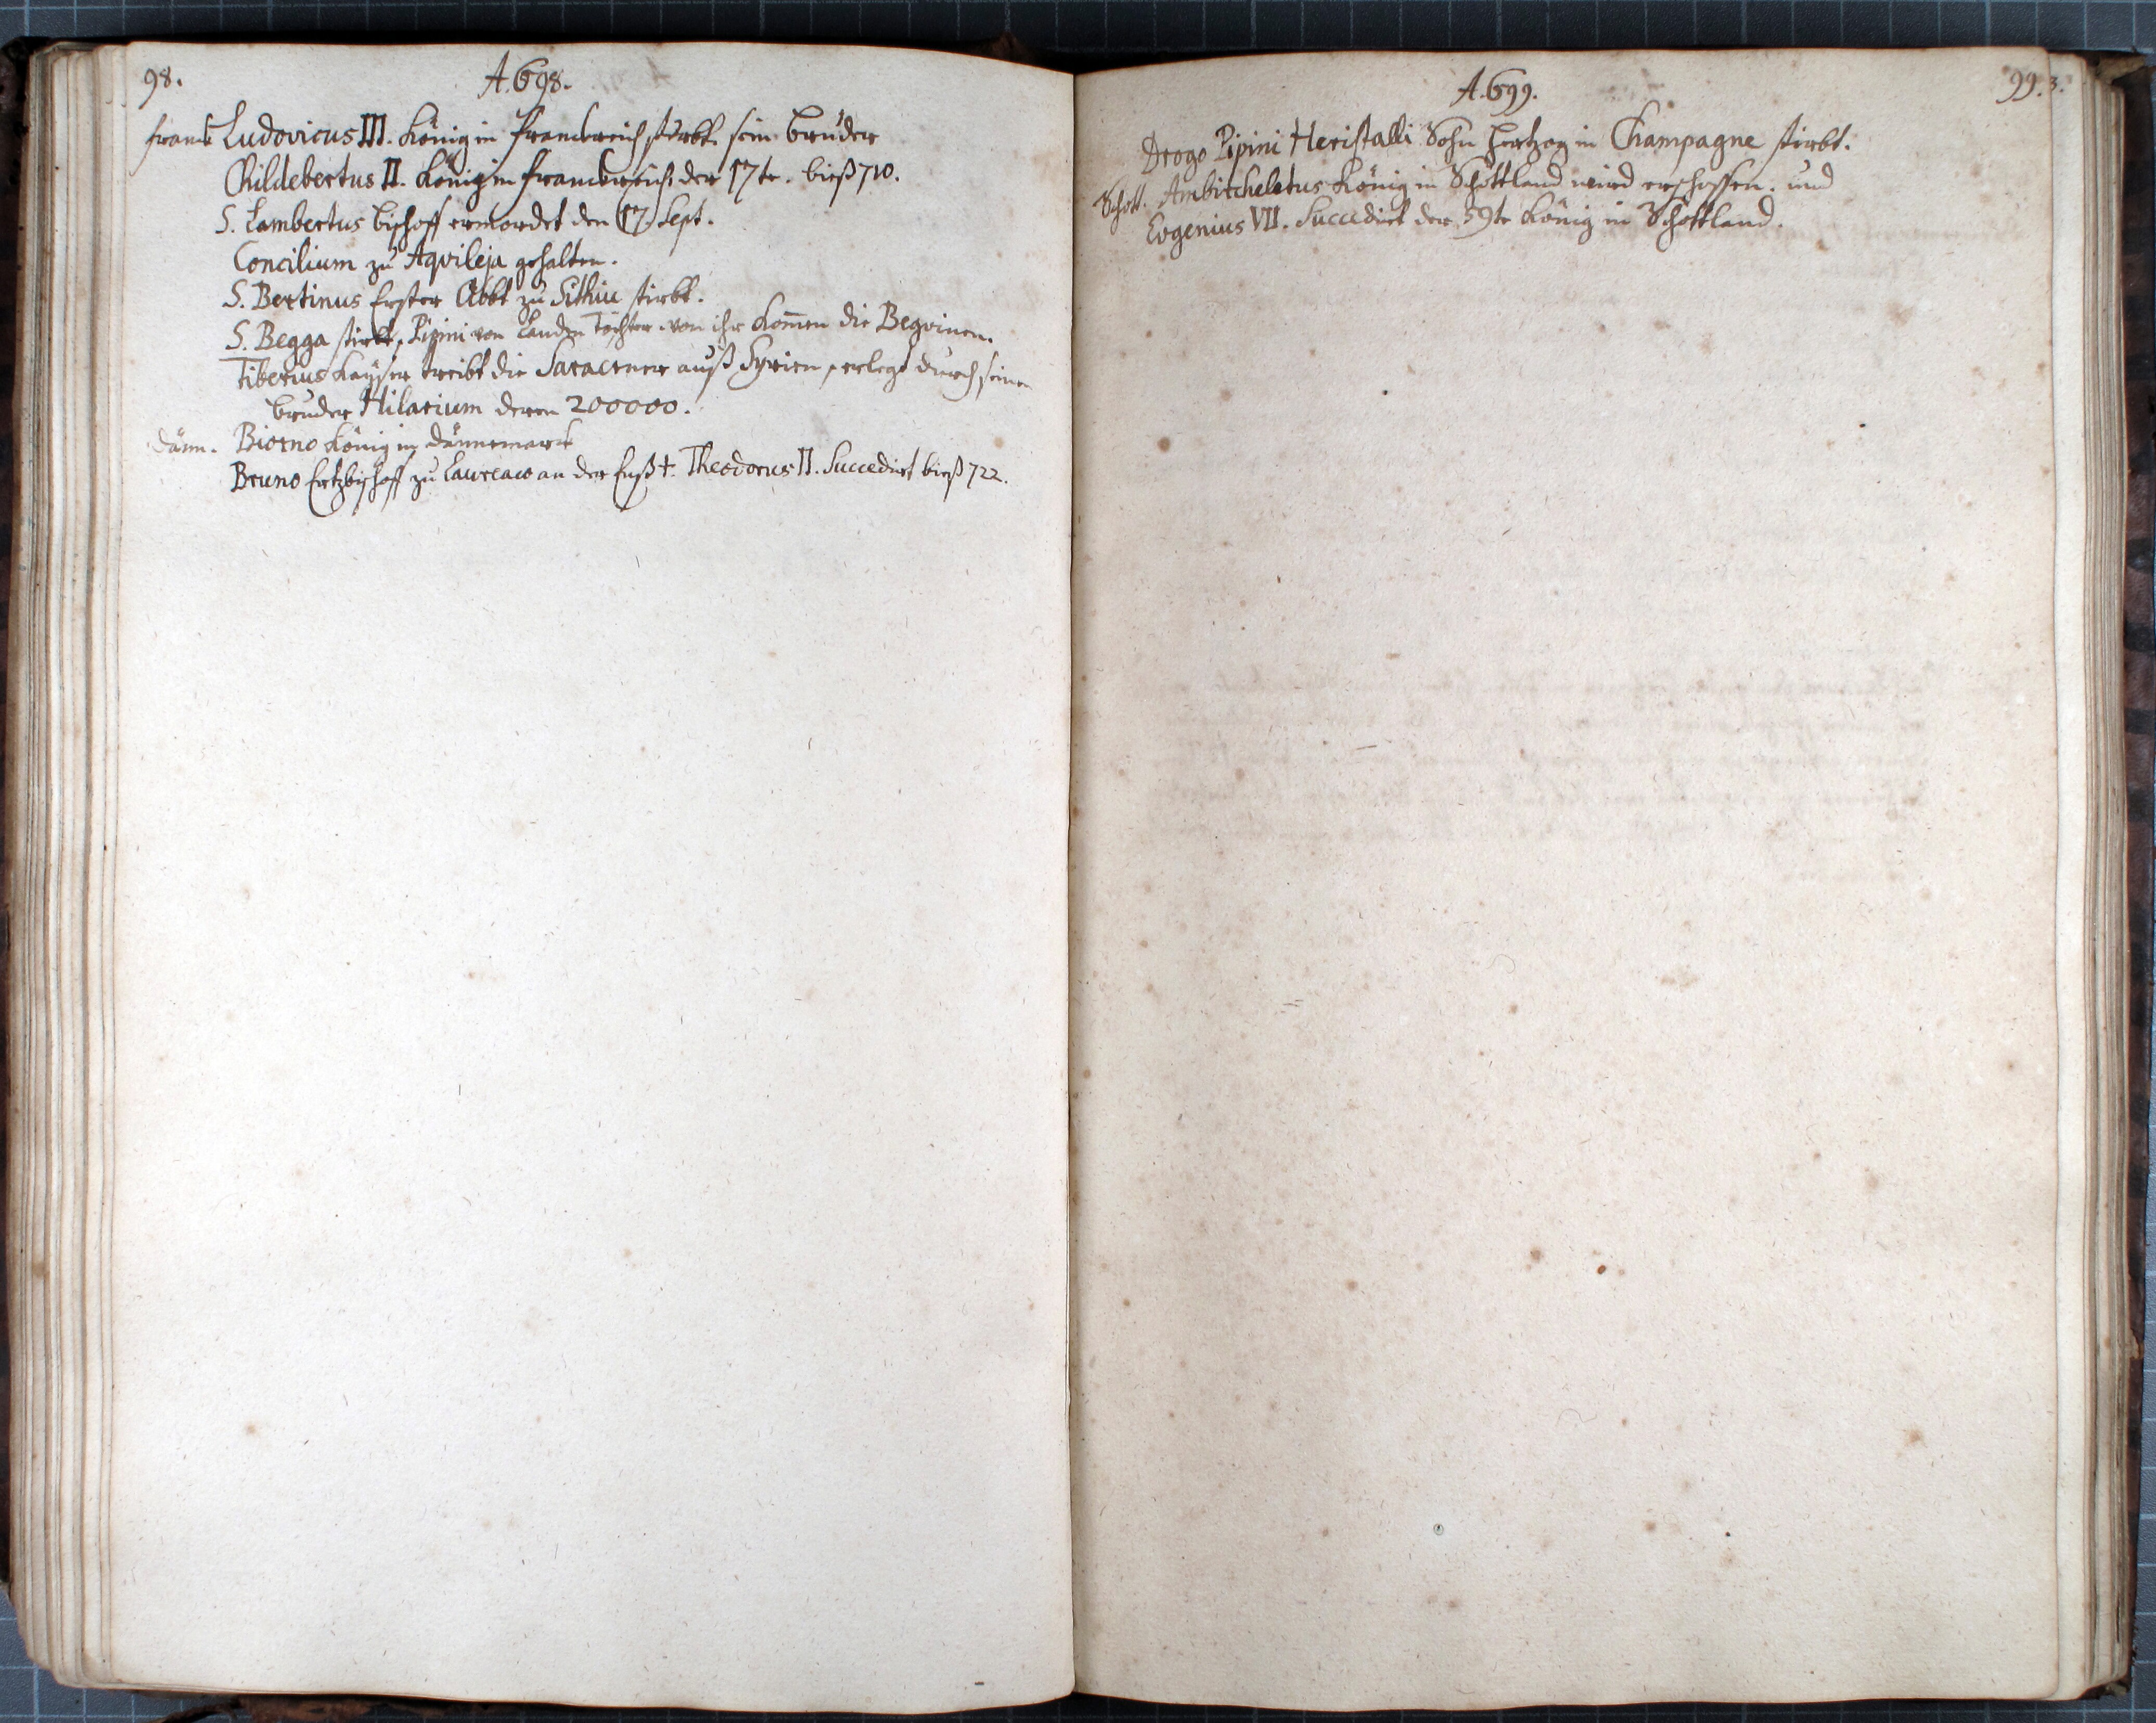 98.
A. 698.
Franck Ludovicus III. König in Franckreich stirbt. sein bruder
Childebertus II. König in Franckreich der 17te. bieß 710.
S. Lambertus bischoff ermordet den 17 Sept.
Concilium zu Aqvileja gehalten.
S. Bertinus Erster Abbt zu Sithiu stirbt.
S. Begga stirbt, Pipini von Landen Tochter. von ihr kom̄en die Begvinen.
Tiberius Kayser treibt die Saracener auß Syrien, erlegt durch seinen
bruder Hilarium deren 200000.
Dänn. Biorno König in Dännemarck
Bruno Ertzbischoff zu Laureaco an der Enß †. Theodorus II. Succedirt bieß 722.
99.
A. 699.
Drogo Pipini Heristalli Sohn Hertzog in Champagne stirbt.
Schott. Ambircheletus König in Schottland wird erschossen. und
Evgenius VII. Succedirt der 59te König in Schottland.